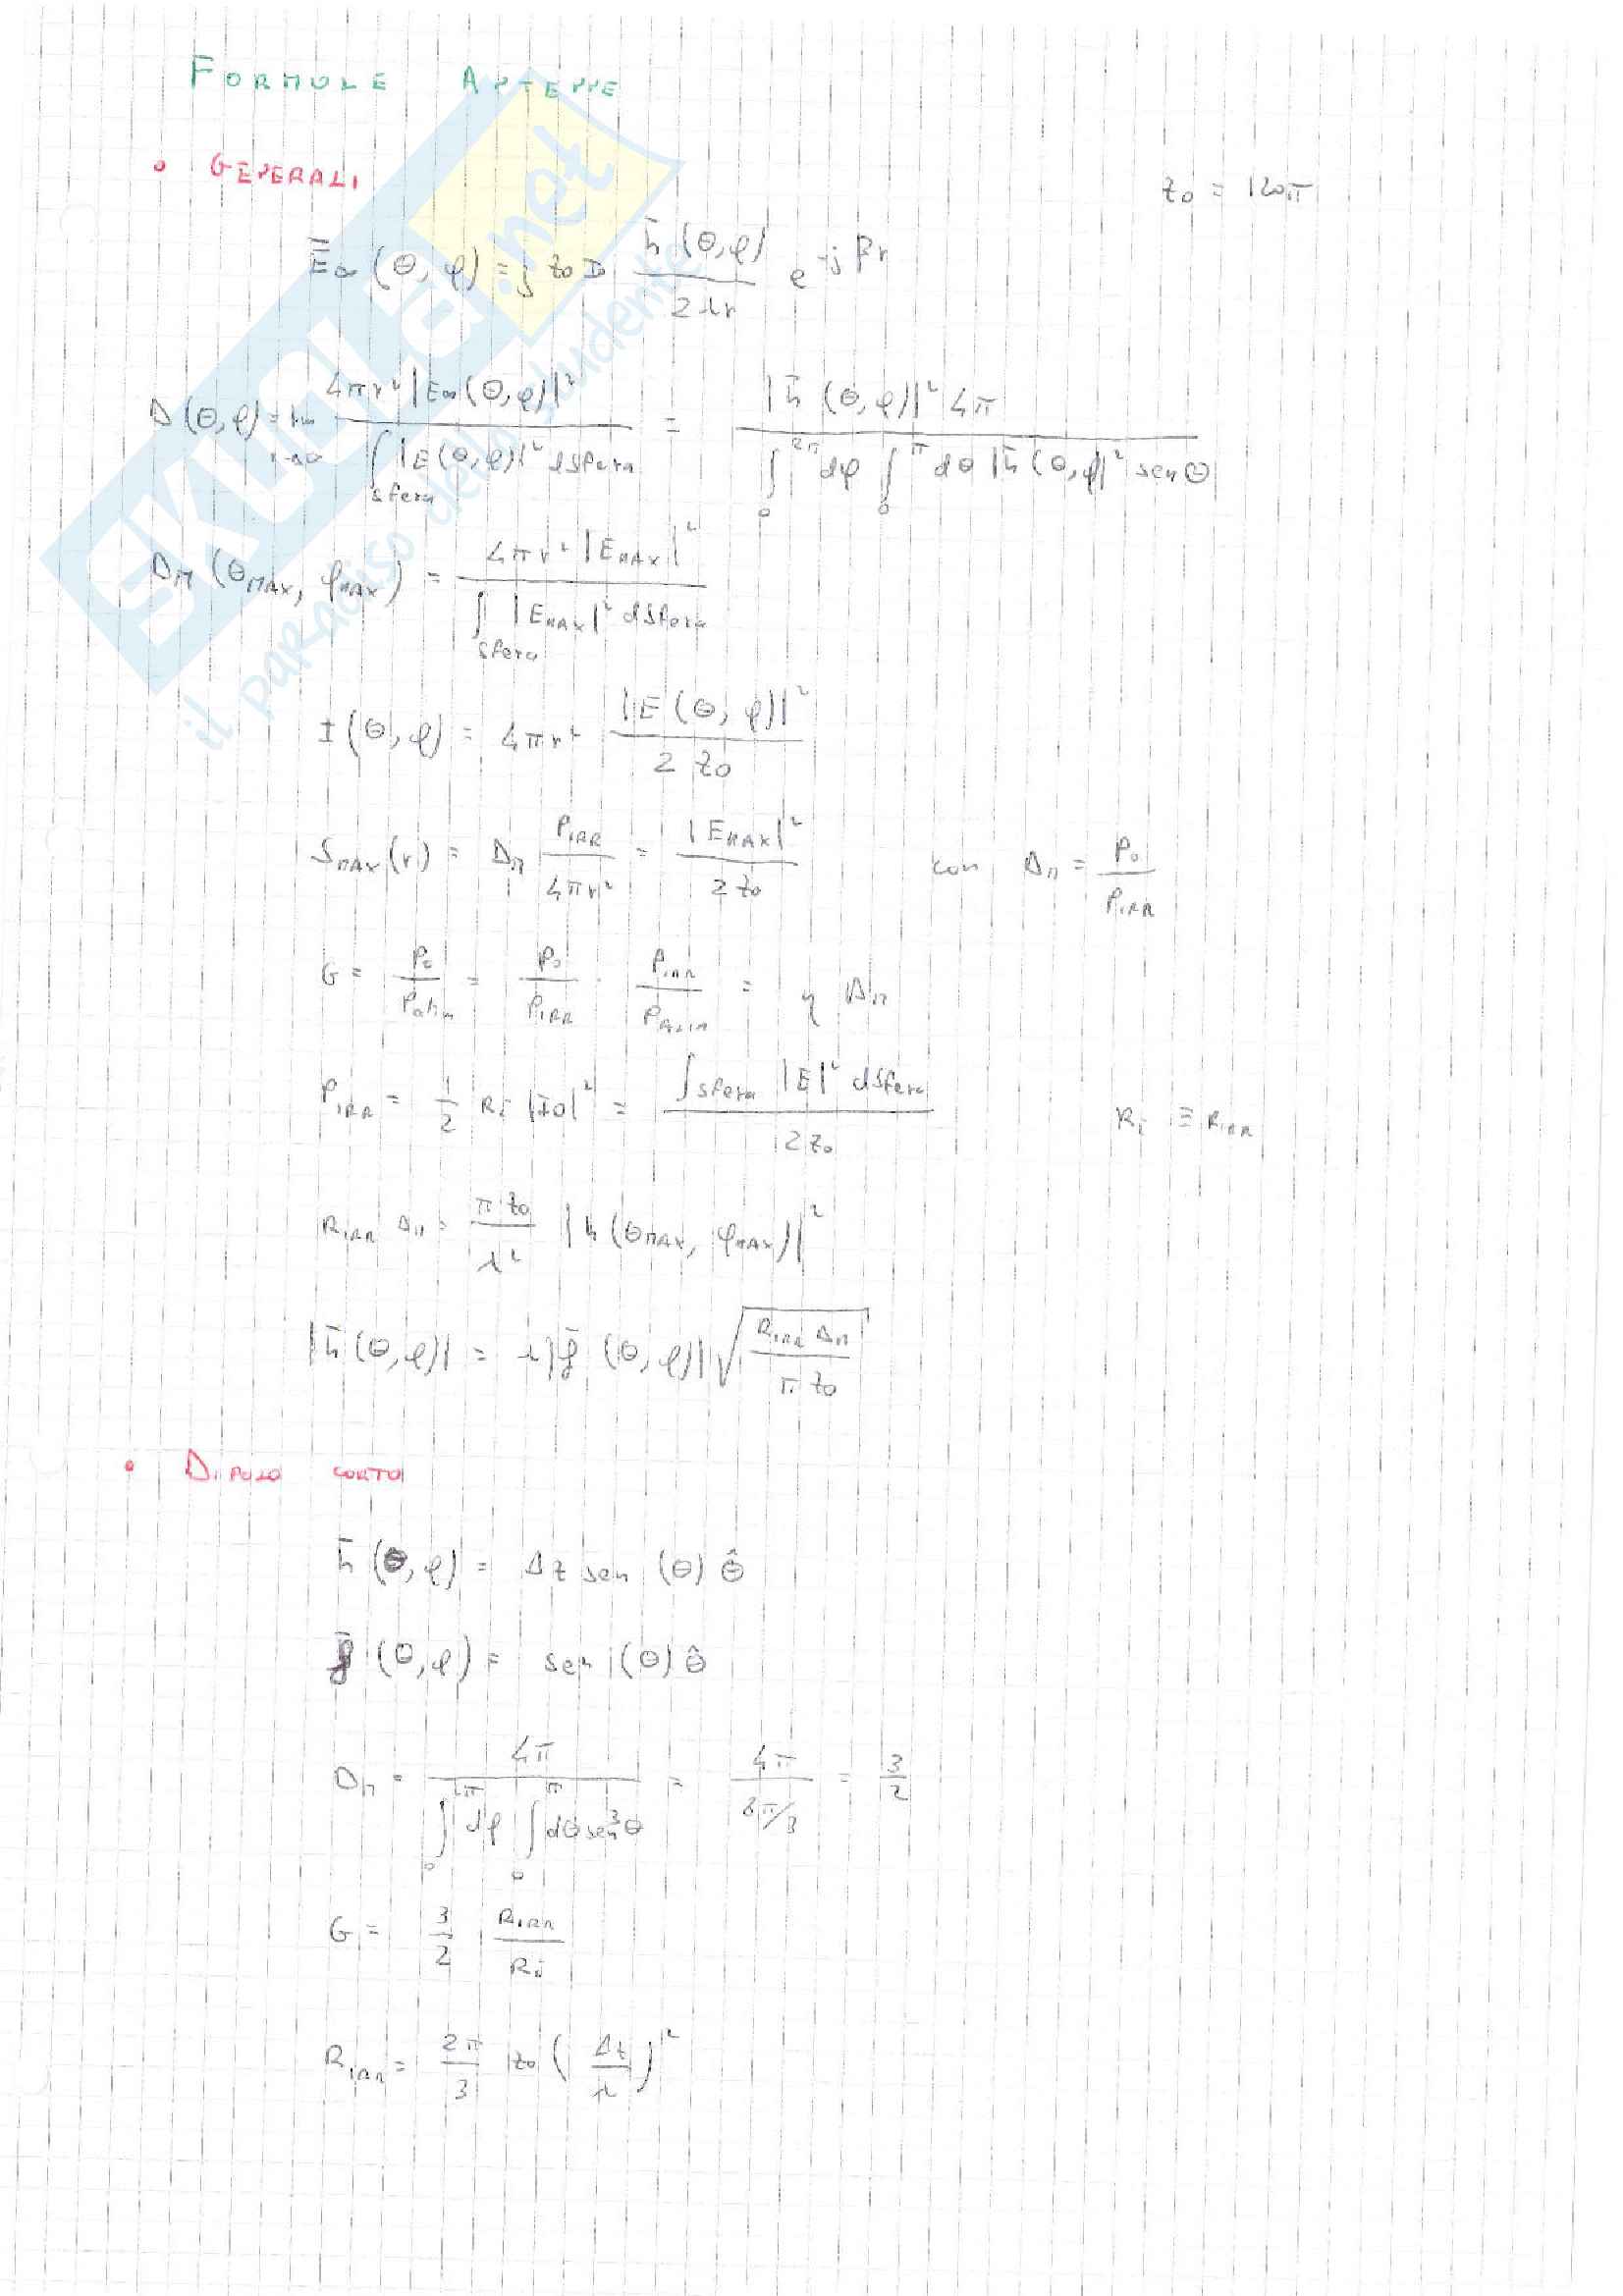 FORMULE ANTENNE
• GENERALI
z₀ = 120π
Ē∞ (θ, φ) = j z₀ I₀ h̄ (θ,φ) / 2λr e^-jβr
D (θ,φ) = lim r→∞ 4πr² |E∞ (θ,φ)|² / ∫sfera |E (θ,φ)|² dSfera = |h̄ (θ,φ)|² 4π / ∫₀^2π dφ ∫₀^π dθ |h̄ (θ,φ)|² sen θ
D_M (θ_MAX, φ_MAX) = 4πr² |E_MAX|² / ∫sfera |E_MAX|² dSfera
I (θ,φ) = 4πr² |E (θ, φ)|² / 2 z₀
S_MAX (r) = D_M P_IRR / 4πr² = |E_MAX|² / 2 z₀ con D_M = P₀ / P_IRR
G = P₀ / P_alim = P₀ / P_IRR · P_IRR / P_ALIM = η D_M
P_IRR = 1/2 R_i |I₀|² = ∫sfera |E|² dSfera / 2 z₀ R_i ≡ R_IRR
R_IRR D_M = π z₀ / λ² |h (θ_MAX, φ_MAX)|²
|h̄ (θ,φ)| = λ |ḡ (θ, φ)| √(R_IRR D_M / π z₀)
• DIPOLO CORTO
h̄ (θ, φ) = Δz sen (θ) θ̂
ḡ (θ,φ) = sen (θ) θ̂
D_M = 4π / ∫₀^2π dφ ∫₀^π dθ sen³ θ = 4π / 8π/3 = 3/2
G = 3/2 R_IRR / R_i
R_IRR = 2π/3 z₀ (Δz / λ)²
SKUOLA.net
il paradiso dello studente